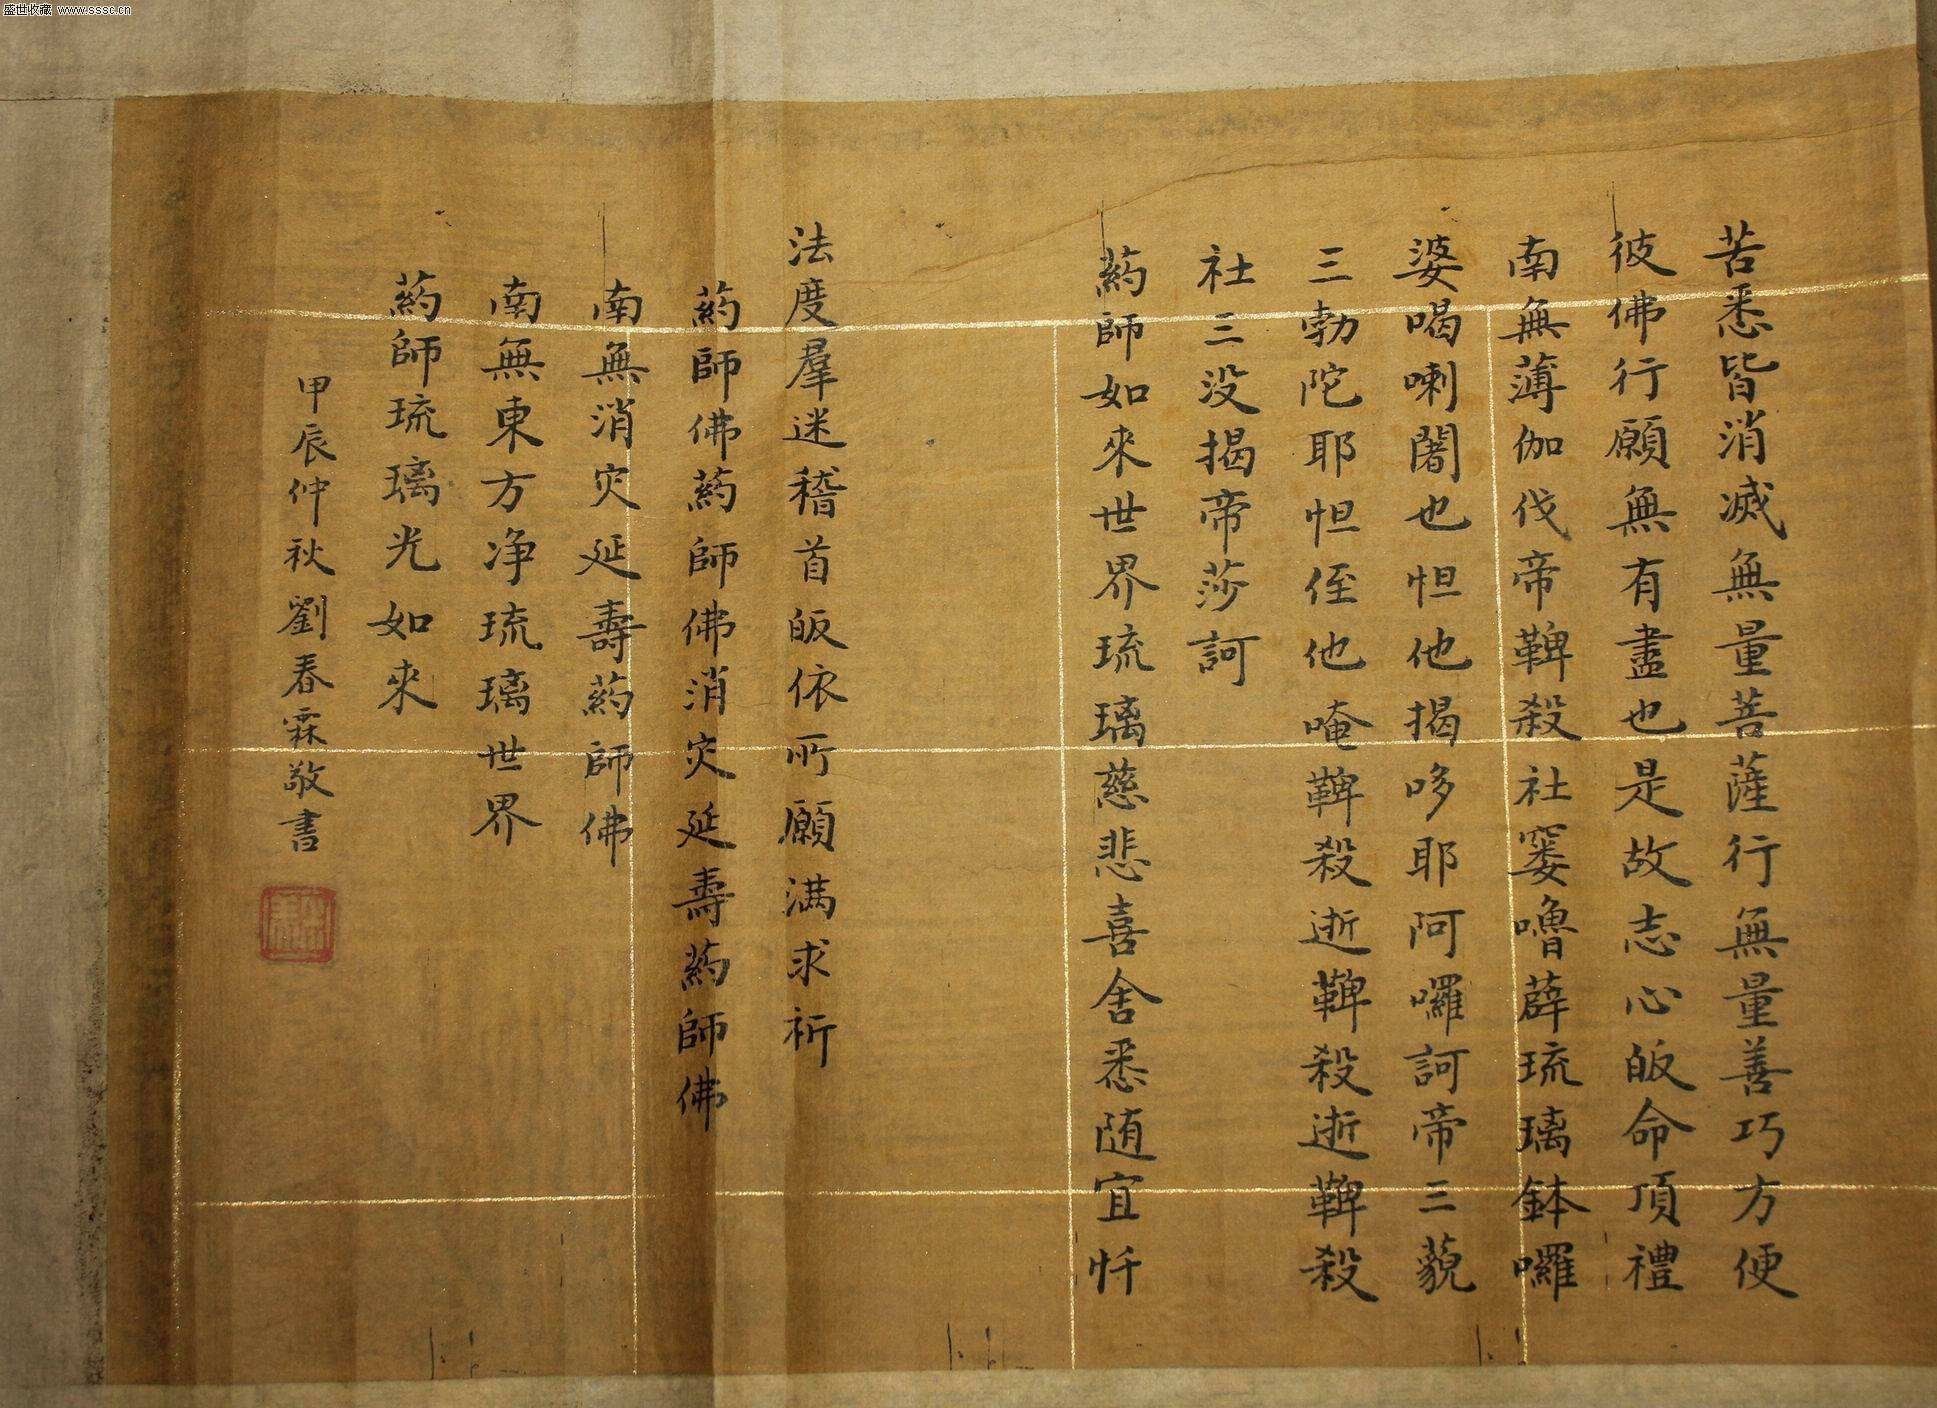 盛世收藏 www.sssc.cn
苦悉皆消滅無量菩薩行無量善巧方便
彼佛行願無有盡也是故志心皈命頂禮
南無薄伽伐帝鞞殺社窶嚕薜琉璃鉢囉
婆喝喇闍也怛他揭哆耶阿囉訶帝三藐
三勃陀耶怛侄他唵鞞殺逝鞞殺逝鞞殺
社三没揭帝莎訶
葯師如來世界琉璃慈悲喜舍悉随宜忏
法度羣迷稽首皈依所願满求祈
葯師佛葯師佛消灾延壽葯師佛
南無消灾延壽葯師佛
南無東方净琉璃世界
葯師琉璃光如來
甲辰仲秋劉春霖敬書